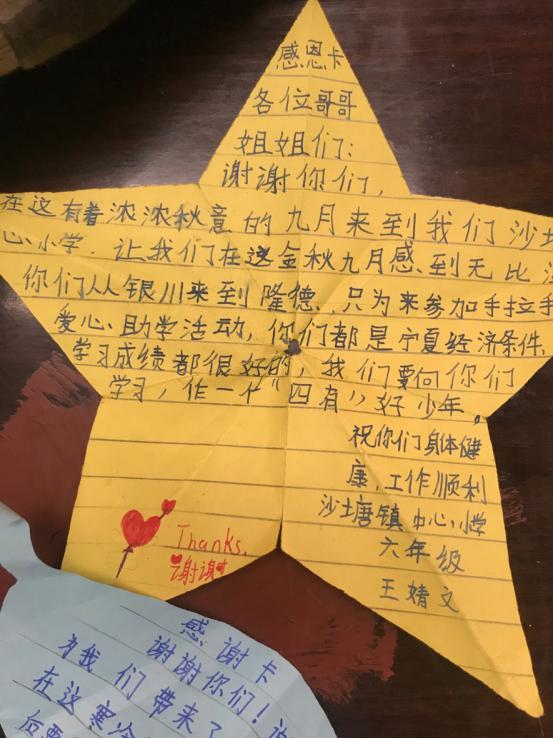 感恩卡
各位哥哥
姐姐们:
谢谢你们,
在这有着浓浓秋意的九月来到我们沙
心小学,让我们在这金秋九月感到无比
你们从银川来到隆德,只为来参加手拉手
爱心助学活动,你们都是宁夏经济条件、
学习成绩都很好的,我们要向你们
学习,作一个“四有”好少年。
祝你们身体健
康,工作顺利
沙土塘镇中心小学
六年级
王婧文
Thanks.
谢谢
感谢卡
谢谢你们!
为我们带来了
在这寒冷
后要